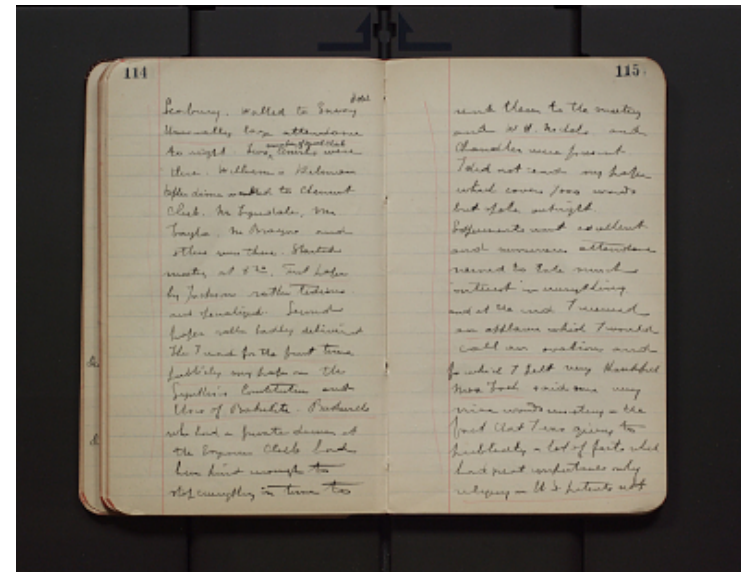 114
Seabury. Walked to Savoy Hotel
Unusually large attendance
to night. Two members of good club were
there. Williams & Hitman
After dinner walked to Chemist
Club. Mr Mr
Taylor. Mr and
others were there. Started
meeting at 8 First paper
by Jackson rather tedious
and penalized. Second
paper rather badly delivered
The I read for the first time
publicly my paper on the
Synthesis Constitution and
Uses of Bakelite.
who had a private dinner at
the Club had
been kind enough to
stop everything in time to
115
send them to the meeting
and W H. Nichols and
Chandler were present.
I did not read my paper
which covers words
but spoke outright.
Experiments went excellent
and numerous attendance
seemed to take much
interest in everything
and at the end I received
an applause which I would
call an ovation and
for which I felt very thankful
said some very
nice words insisting on the
fact that I was giving to
publicity a lot of facts which
had great importance only
relying on U S patents not